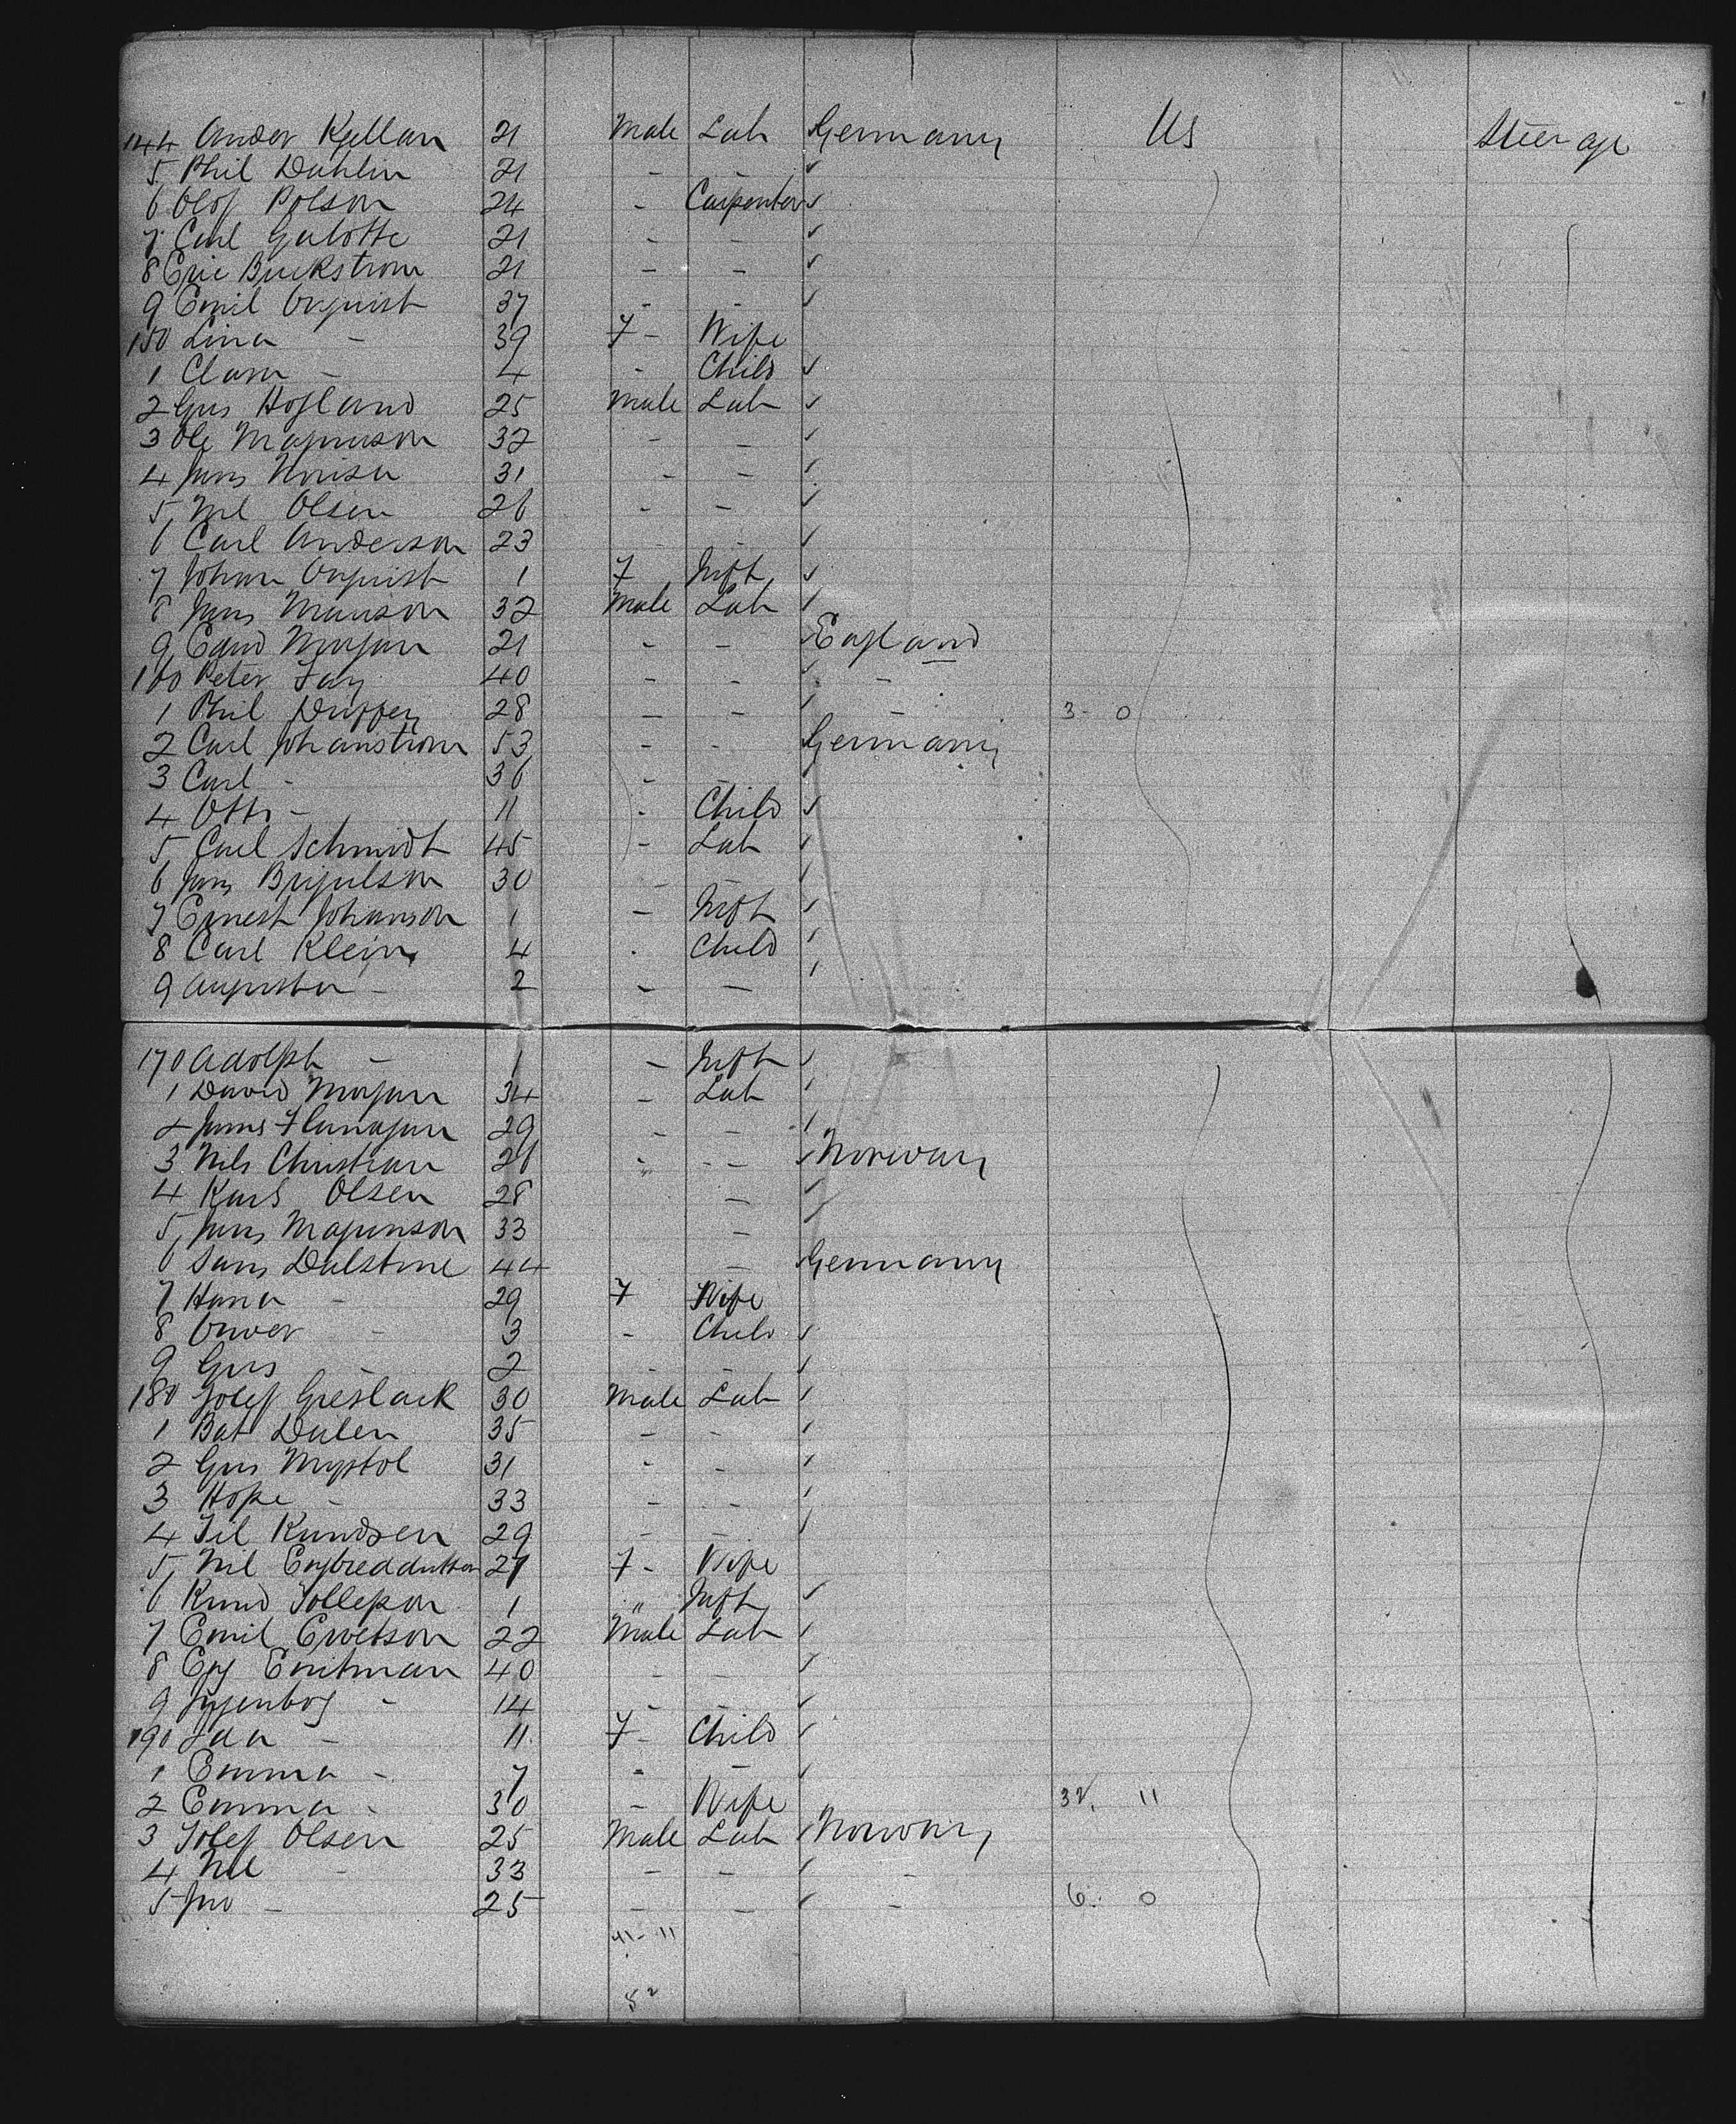 144 Ander Kjellan 21 Male Lab Germany US Steerage
5 Phil Dahlin 21 - -
6 Olof Polson 24 - Carpenter
7 Carl Galotte 21 - -
8 Eric Buckstrom 21 - -
9 Emil Orquist 37 - -
150 Lina - 39 F - Wife
1 Clara - 4 - Child
2 Gus Hogland 25 Male Lab
3 Ole Magnuson 32 - -
4 Jans 31 - -
5 Nil Olsen 26 - -
6 Carl Anderson 23 - -
7 Johan Orquist 1 F Inft
8 Jans Manson 32 Male Lab
9 Edwd Morgan 21 - - England
160 Peter Fay 40 - - -
1 Phil Duffey 28 - - - 3 - 0
2 Carl Johanstrom 53 - - Germany
3 Carl - 36 - -
4 Otto - 11 - Child
5 Carl Schmidt 45 - Lab
6 Jans 30 - -
7 Ernest Johanson 1 - Inft
8 Carl Klein 4 - Child
9 Augusta - 2 - -
170 Adolph - 1 - Inft
1 David Morgan 34 - Lab
2 James Flanagan 29 - -
3 Nils Christian 26 - - Norway
4 Karl Olsen 28 -
5 Jans Magunson 33 -
6 Sam Dalstine 44 - Germany
7 Hana - 29 F Wife
8 - 3 - Child
9 Gus 2 - -
180 Josef Greslack 30 Male Lab
1 Bat Dalen 35 - -
2 Gus 31 - -
3 Hope - 33 - -
4 Til Kundsen 29 - -
5 Nil 27 F - Wife
6 Knud Tollefson 1 " Inft
7 Emil 22 Male Lab
8 40 - -
9 - 14 - -
190 Ida - 11 F - Child
1 Emma - 7 - -
2 Emma - 30 - Wife 32. 11
3 Josef Olsen 25 Male Lab Norway
4 Nil - 33 - - -
5 Jno - 25 - - - 6. 0
41 - 11
52